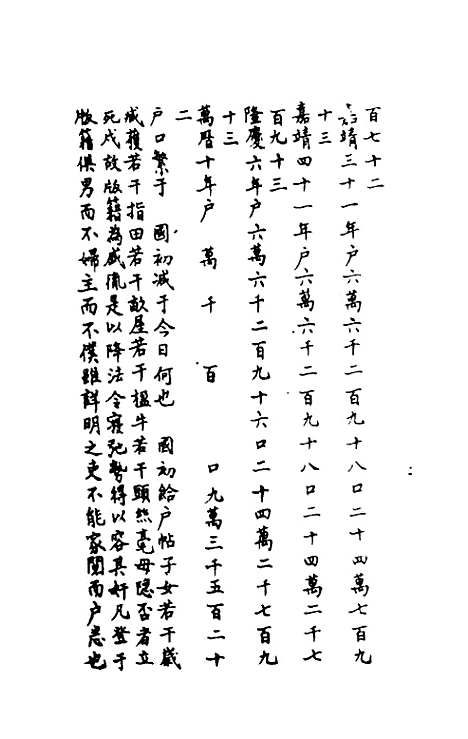 百七十二
嘉靖三十一年户六萬六千二百九十八口二十四萬七百九
十三
嘉靖四十一年户六萬六千二百九十八口二十四萬二千七
百九十三
隆慶六年户六萬六千二百九十六口二十四萬二千七百九
十三
萬曆十年户 萬 千 百 口九萬三千五百二十
二
户口繁于 國初减于今日何也 國初給户帖子女若干歲
臧獲若干指田若干畝屋若干楹牛若干頭㷊毫毋隐否者立
死戍故版籍為盛胤是以降法令寝弛勢得以容其奸凡登于
版籍俱男而不婦主而不僕雖詳明之吏不能家閱而户悉也